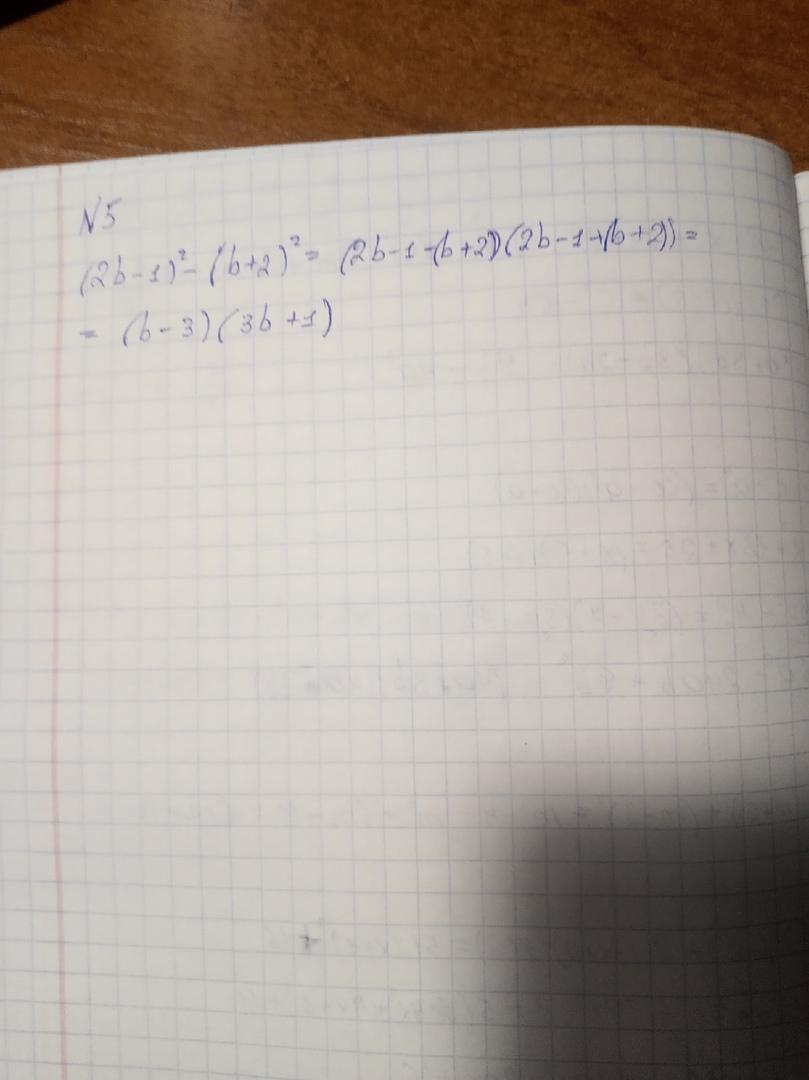 N5
(2b-1)²-(b+2)²= (2b-1-(b+2))(2b-1+(b+2))=
= (b-3)(3b+1)